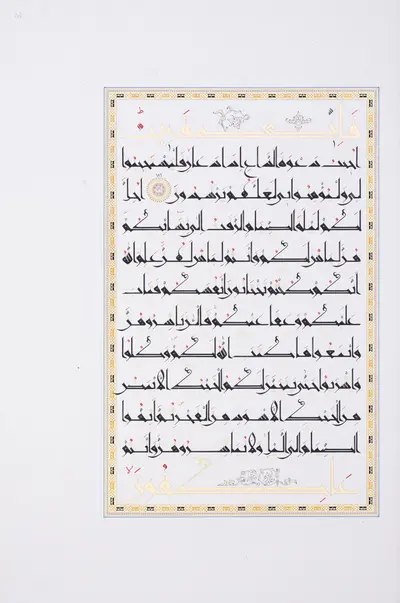 فإني قريب
أجيب دعوة الداع إذا دعان فليستجيبوا
لي وليؤمنوا بي لعلهم يرشدون أحل
لكم ليلة الصيام الرفث إلى نسائكم
هن لباس لكم وأنتم لباس لهن علم الله
أنكم كنتم تختانون أنفسكم فتاب
عليكم وعفا عنكم فالآن باشروهن
وابتغوا ما كتب الله لكم وكلوا
واشربوا حتى يتبين لكم الخيط الأبيض
من الخيط الأسود من الفجر ثم أتموا
الصيام إلى الليل ولا تباشروهن وأنتم
عاكفون